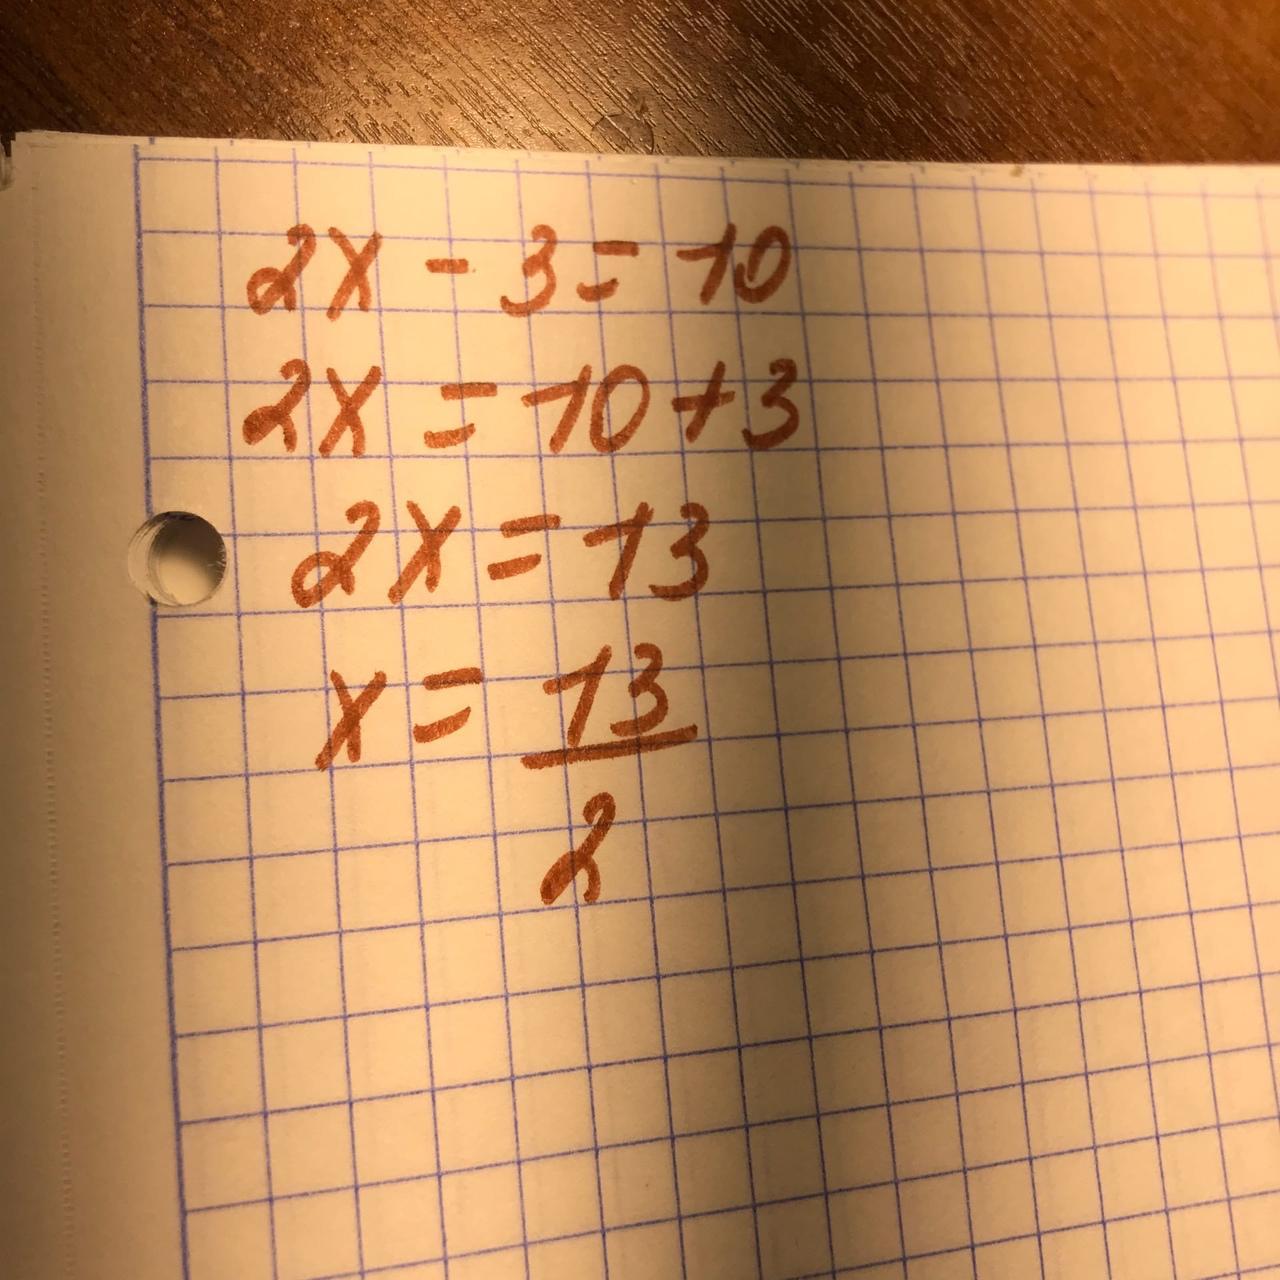 2x - 3 = 10
2x = 10 + 3
2x = 13
x = 13
2